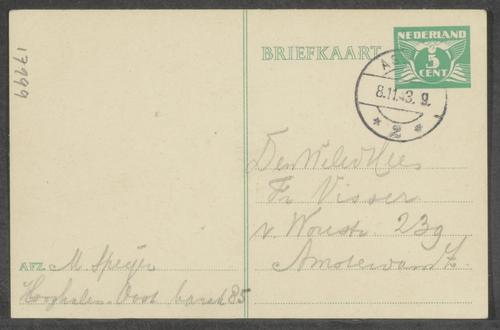 17999
BRIEFKAART
NEDERLAND
5
CENT
AS
8.11.43. 9.
* 2 *
Den WelEd Heer
Fr Visser
v. Woustr. 239
Amsterdam Z.
AFZ. M Speijer
Hooghalen-Oost barak 85